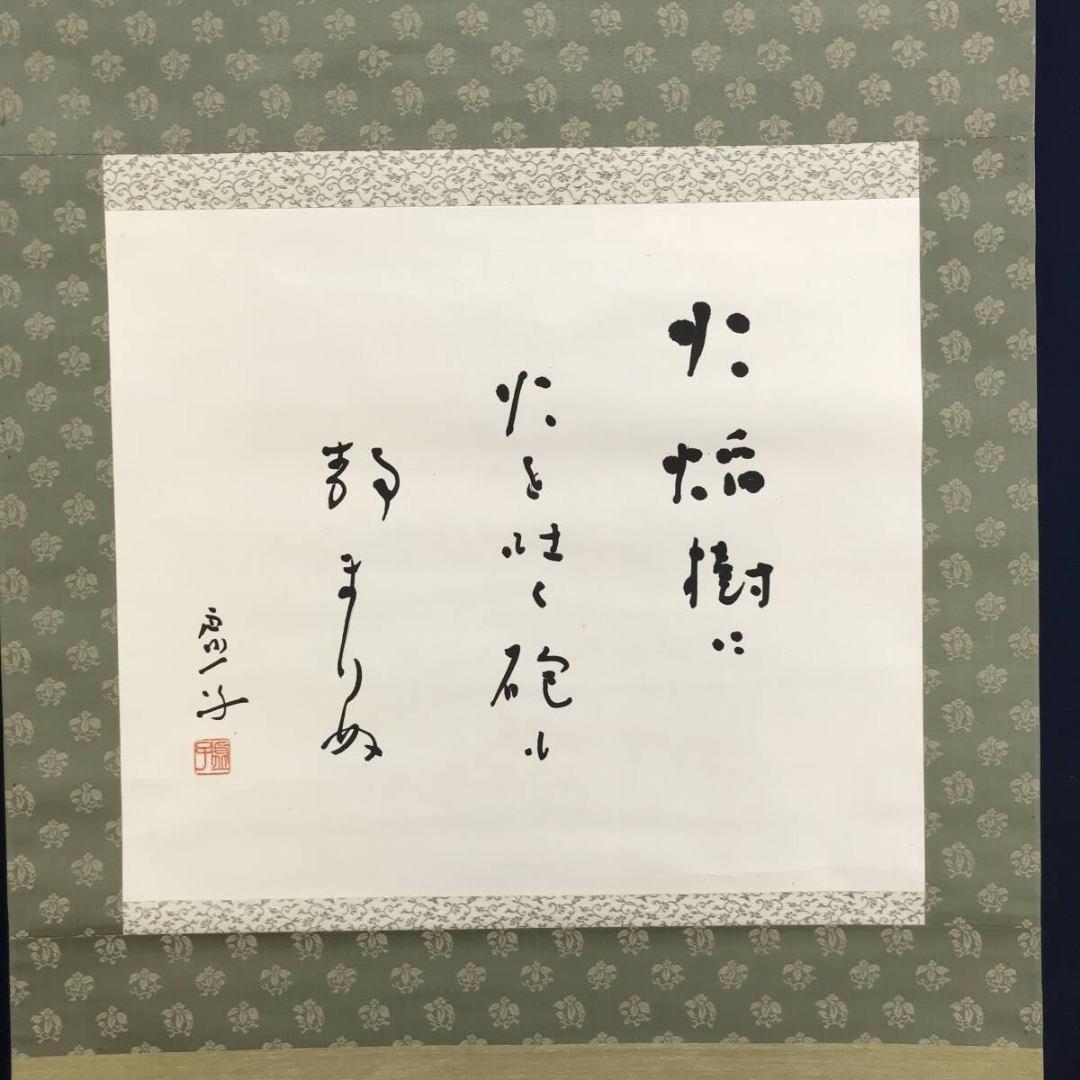 火焔樹に
火を吐く砲も
静まりぬ